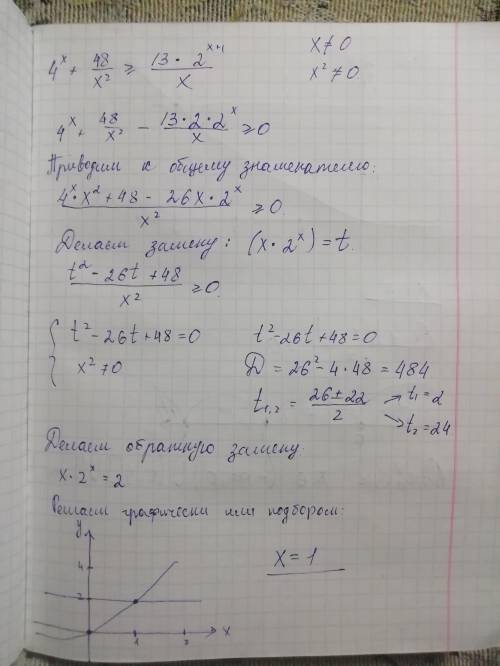 4^x + 48/x² ≥ 13 · 2^(x+1)/x     x ≠ 0
x² ≠ 0
4^x + 48/x² − 13 · 2 · 2^x/x ≥ 0
Приводим к общему знаменателю:
(4^x · x² + 48 − 26x · 2^x)/x² ≥ 0
Делаем замену: (x · 2^x) = t
(t² − 26t + 48)/x² ≥ 0
{ t² − 26t + 48 = 0     t² − 26t + 48 = 0
x² ≠ 0     D = 26² − 4 · 48 = 484
t1,2 = (26 ± 22)/2     t1 = 2
t2 = 24
Делаем обратную замену
x · 2^x = 2
Решаем графически или подбором:
y
4     x = 1
2
1     x